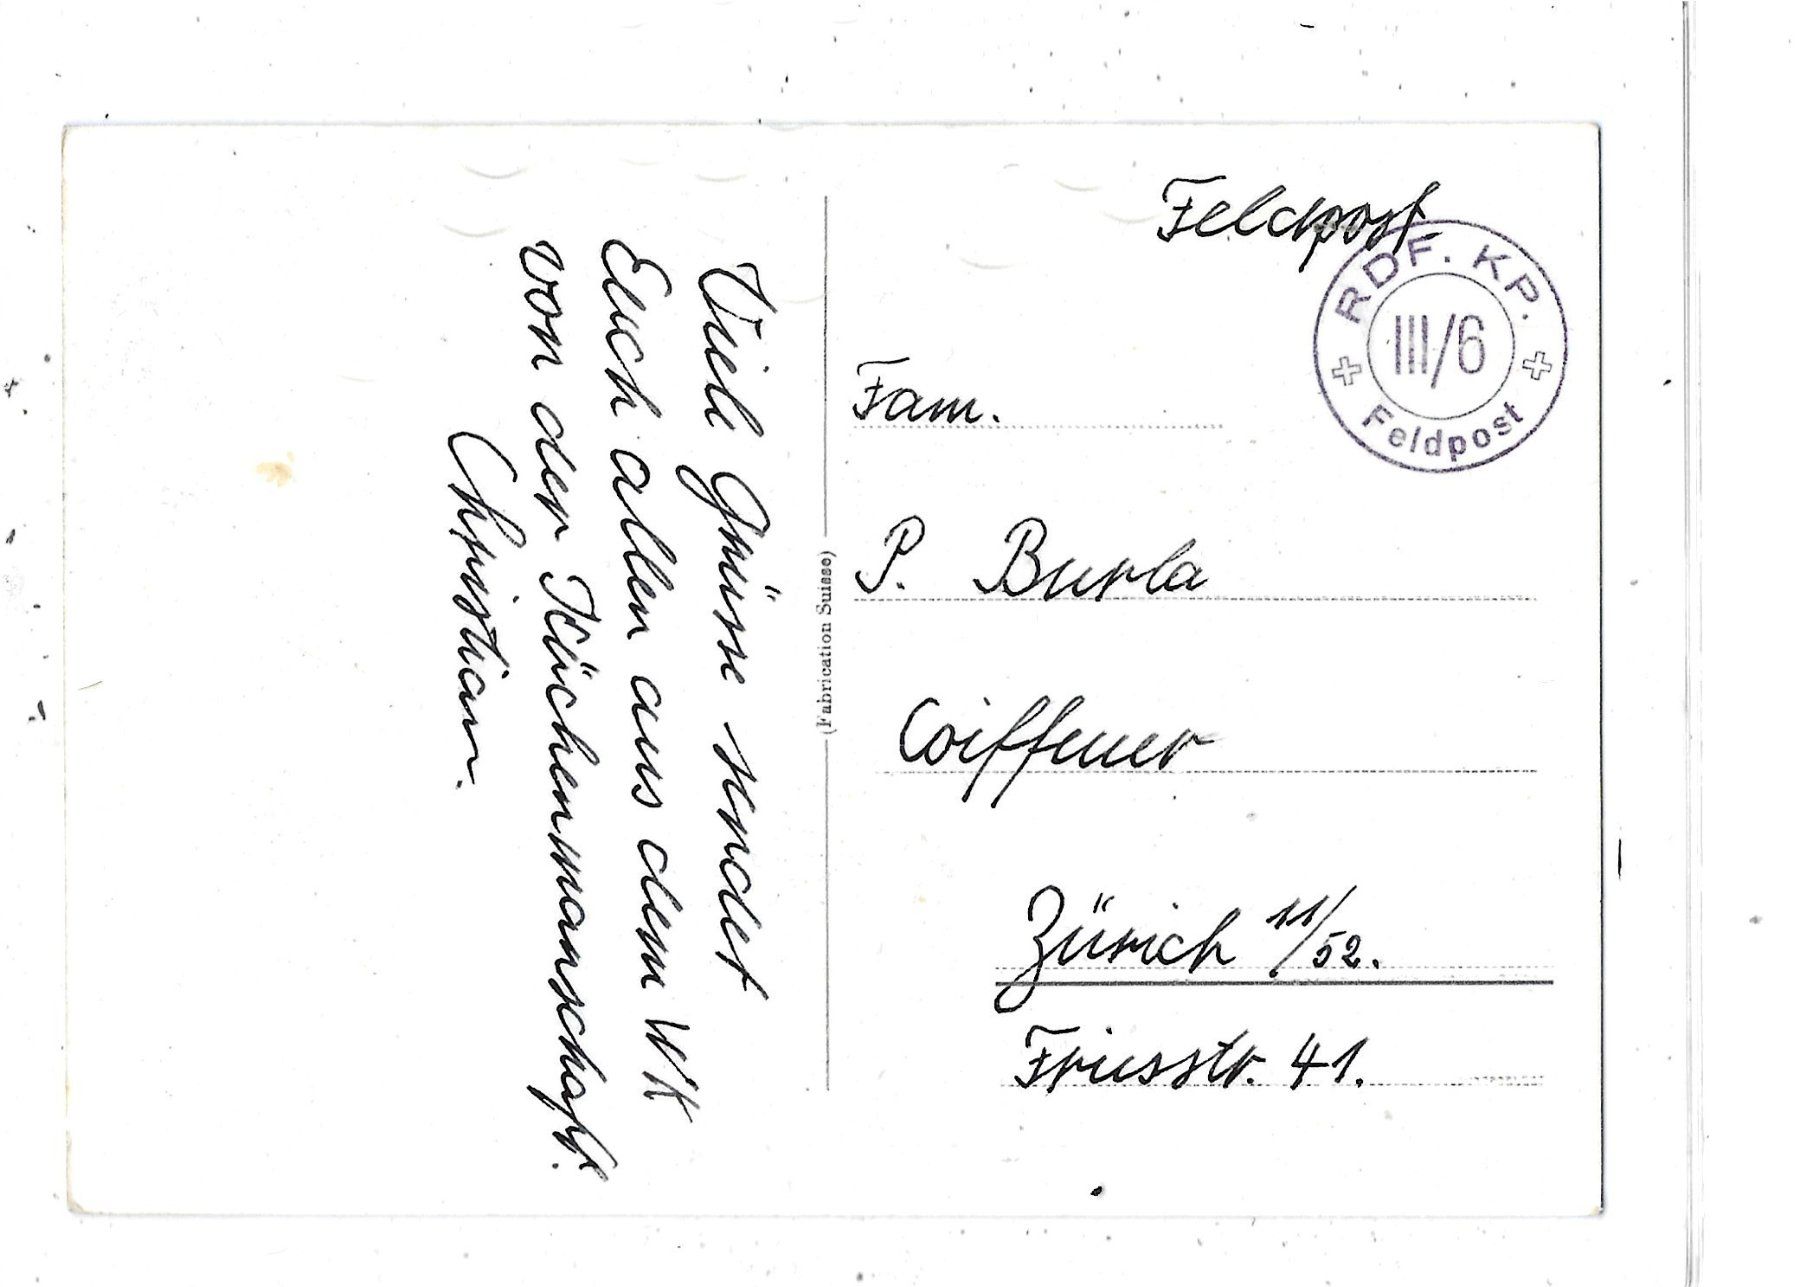 Viele Grüsse sendet
Euch allen aus dem WK
von der Küchenmannschaft.
Christian.
(Fabrication Suisse)
Feldpost
RDF. KP.
III/6
Feldpost
Fam.
P. Burla
Coiffeuer
Zürich 11/52.
Friesstr. 41.